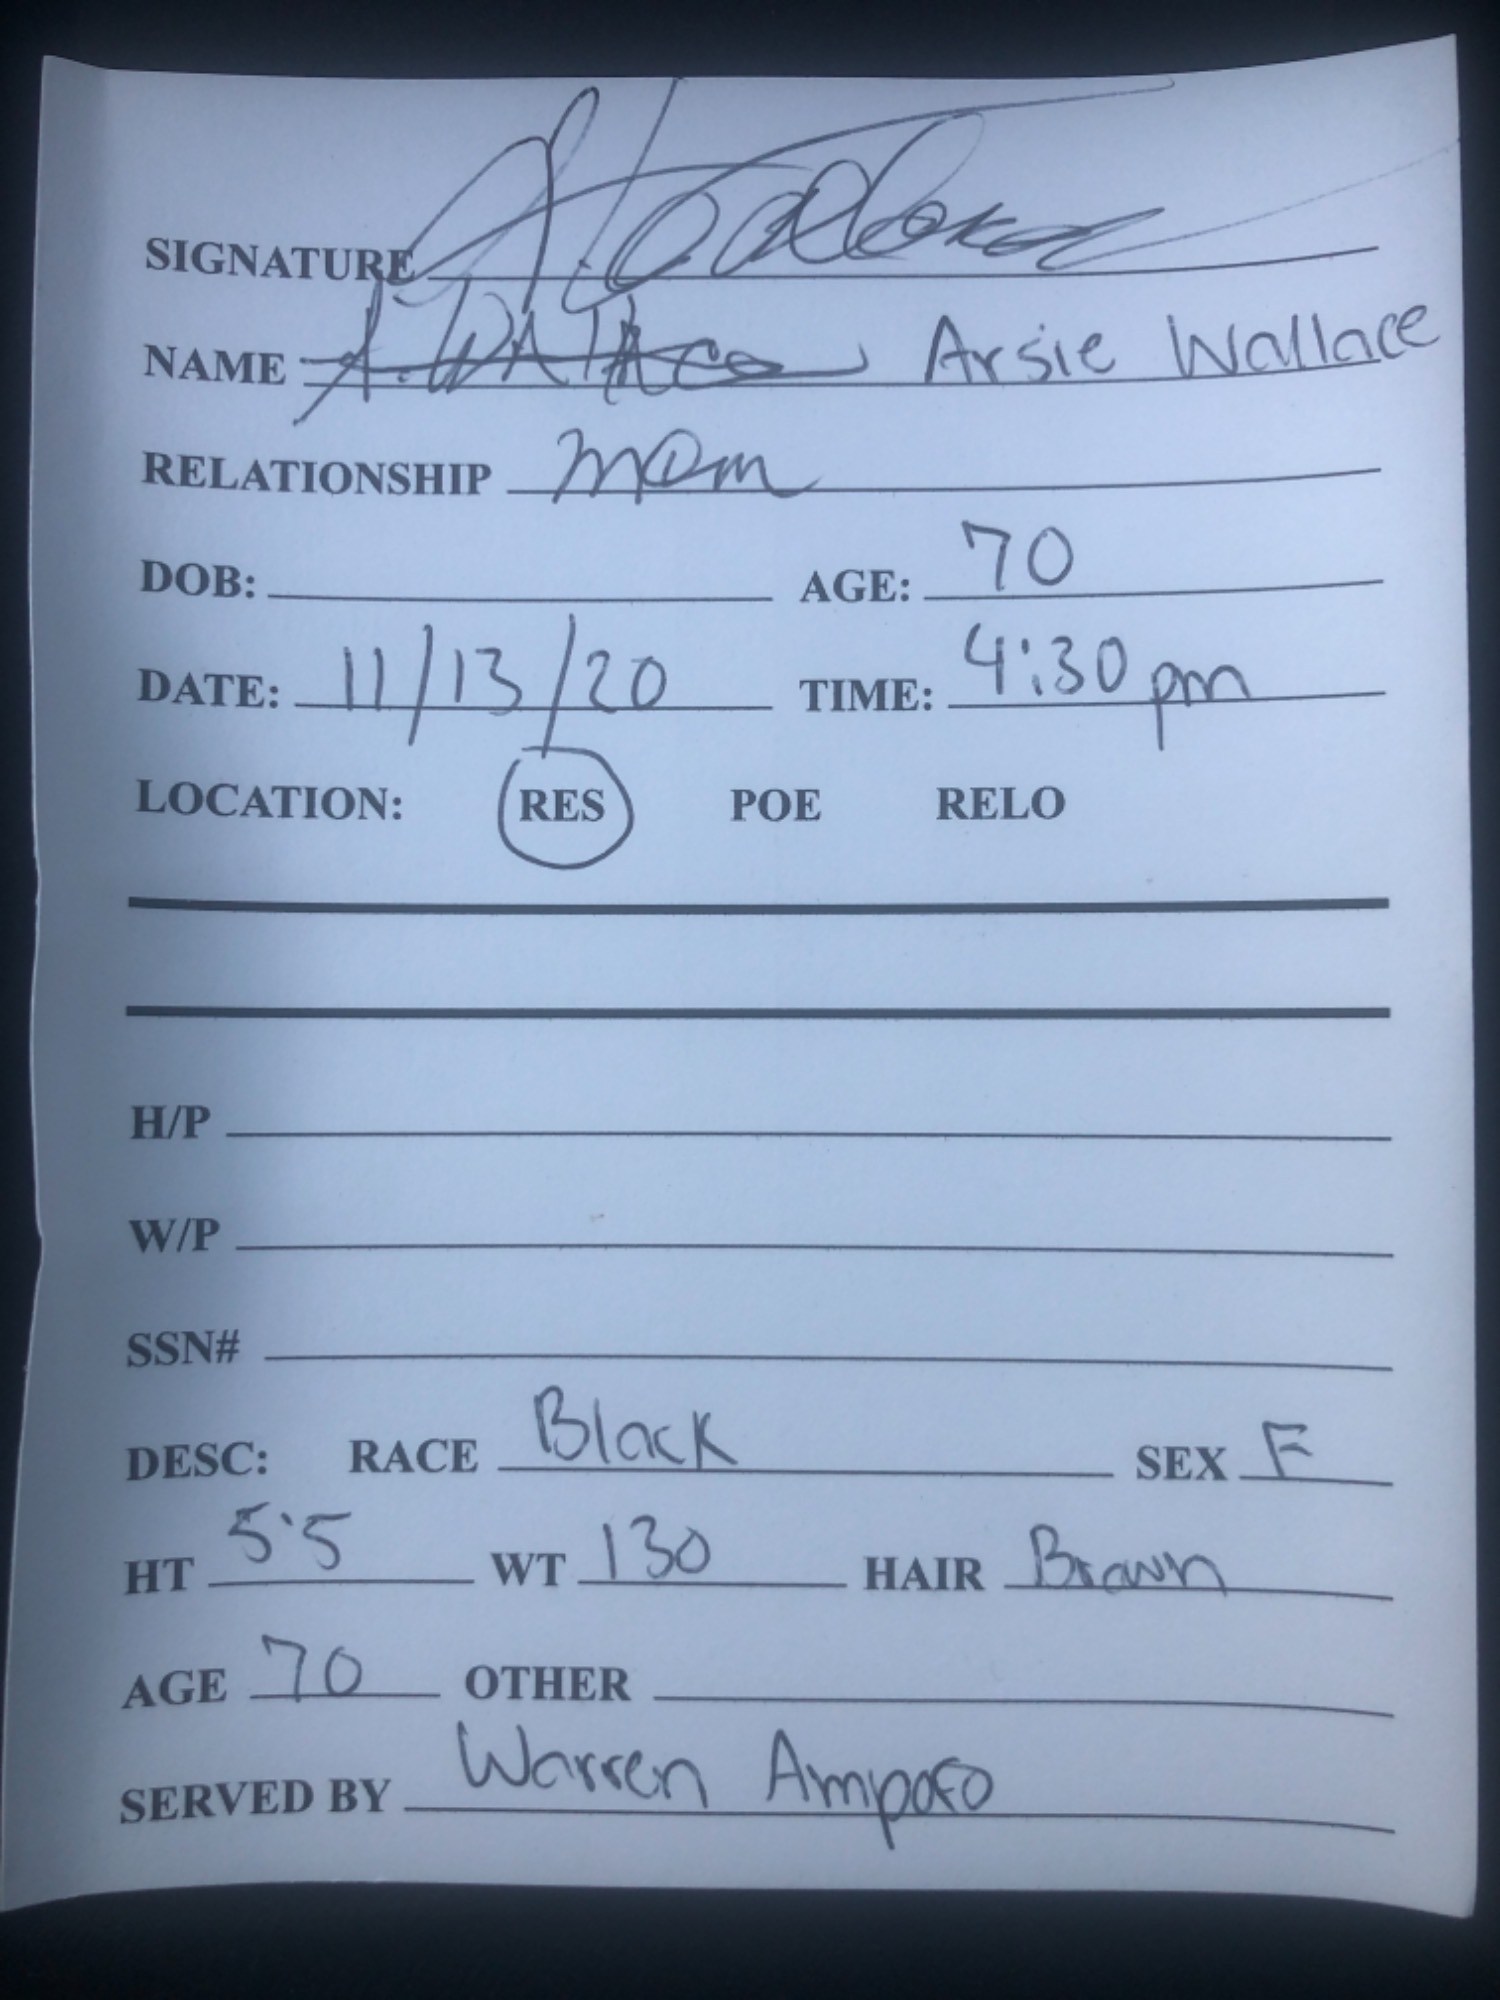 SIGNATURE
NAME Arsie Wallace
RELATIONSHIP mom
DOB: AGE: 70
DATE: 11/13/20 TIME: 4:30 pm
LOCATION: RES POE RELO
H/P
W/P
SSN#
DESC: RACE Black SEX F
HT 5'5 WT 130 HAIR Brown
AGE 70 OTHER
SERVED BY Warren Ampofo